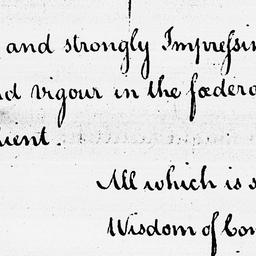 and strongly Impreſsin
nd vigour in the fœdera
ient.
All which is s
Wisdom of Con